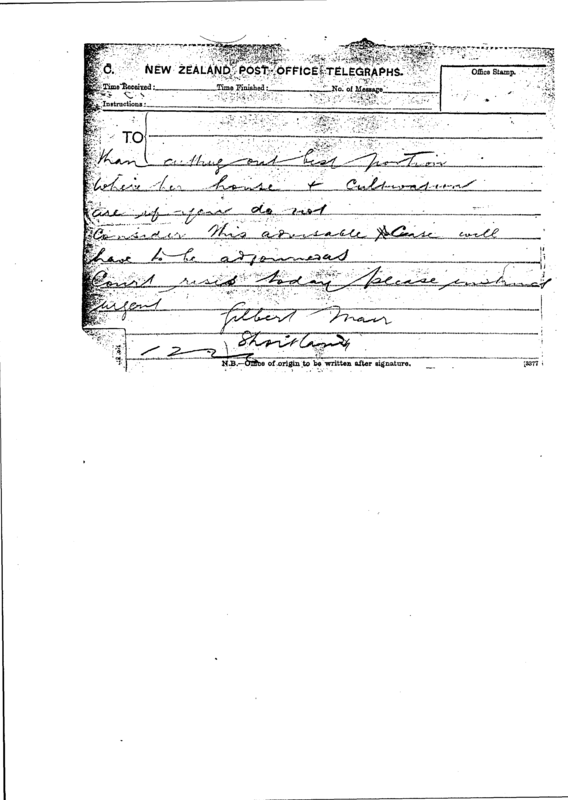 C. NEW ZEALAND POST OFFICE TELEGRAPHS.
Office Stamp.
Time Received: Time Finished: No. of Message
Instructions:
TO
than cutting out best portion
where her house & cultivations
are if you do not
consider this advisable case will
have to be adjourned
Court rises today please instruct
urgent
Gilbert Mair
Shortland
N.B.—Office of origin to be written after signature.